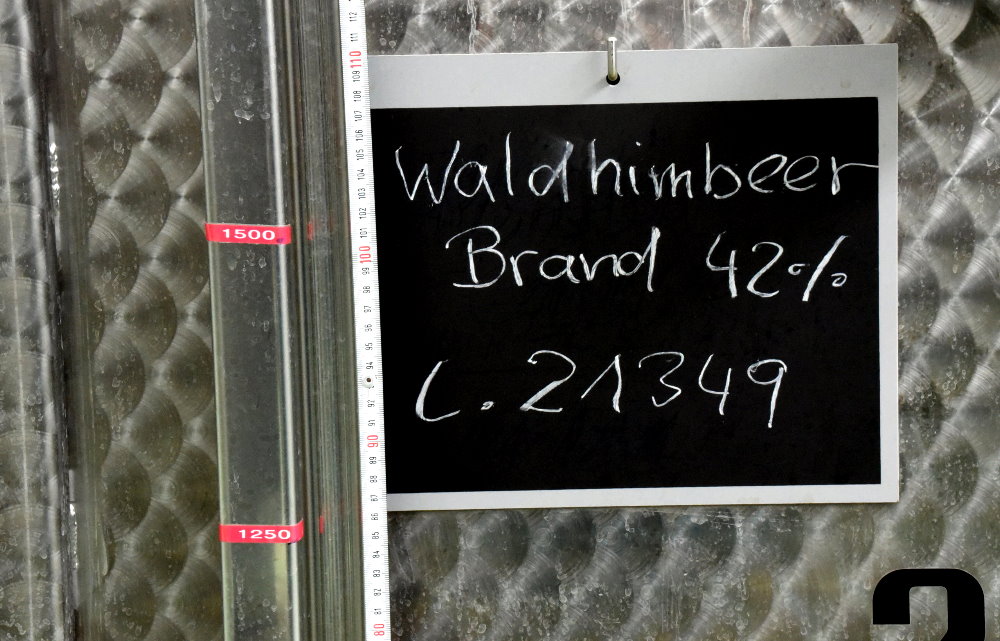 Waldhimbeer
Brand 42%
L. 21349
1500
1250
112
111
110
109
108
107
106
105
104
103
102
101
100
99
98
97
96
95
94
93
92
91
90
89
88
87
86
85
84
83
82
81
80